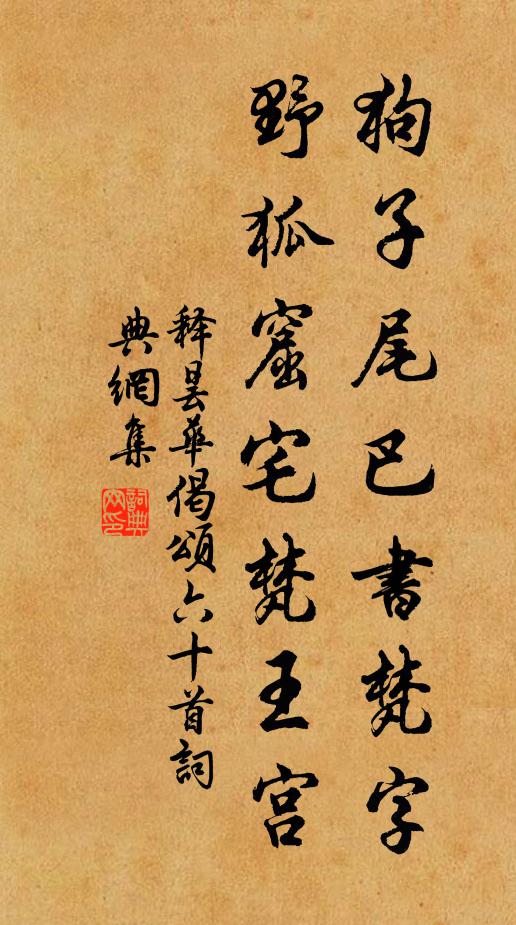 狗子尾巴書梵字
野狐窟宅梵王宮
释曇華偈頌六十首詞
典網集
詞典
网印